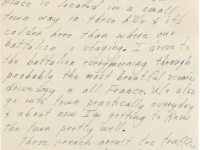 place is located in a small
town way in these & it's
colder here than where our
battalion is staging. I drive to
the battalion every morning through
probably the most beautiful scenic
drive way in all France. We also
go into town practically everyday
& about now I'm getting to know
the town pretty well.
These French aren't too